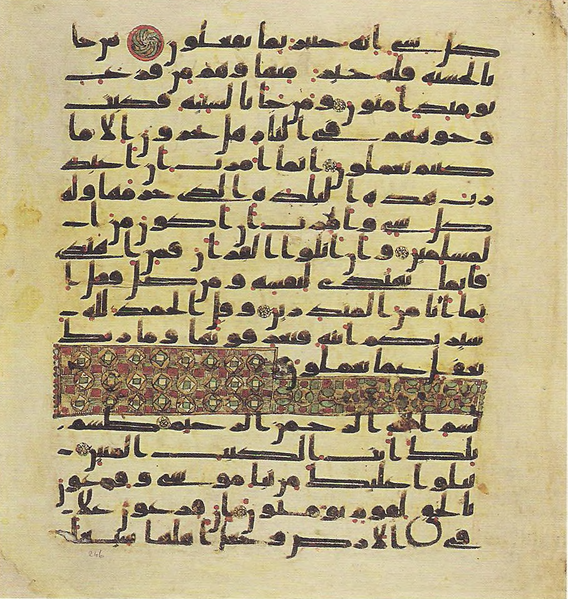 كل شي انه خبير بما يفعلون من جا
بالحسنه فله خير منها وهم من فزع
يومئذ امنون ومن جا بالسيئه فكبت
وجوههم في النار هل تجزون الا ما
كنتم تعملون انما امرت ان اعبد
رب هذه البلده الذي حرمها وله
كل شي وامرت ان اكون من ا
لمسلمين وان اتلوا القران فمن اهتدى
فانما يهتدي لنفسه ومن ضل فقل ا
نما انا من المنذرين وقل الحمد لله
سيريكم ايته فتعرفونها وما ربك
بغفل عما تعملون
بسم الله الرحمن الرحيم طسم
تلك ايت الكتب المبين
نتلوا عليك من نبا موسى وفرعون
بالحق لقوم يومنون ان فرعون علا
في الارض وجعل اهلها شيعا
246